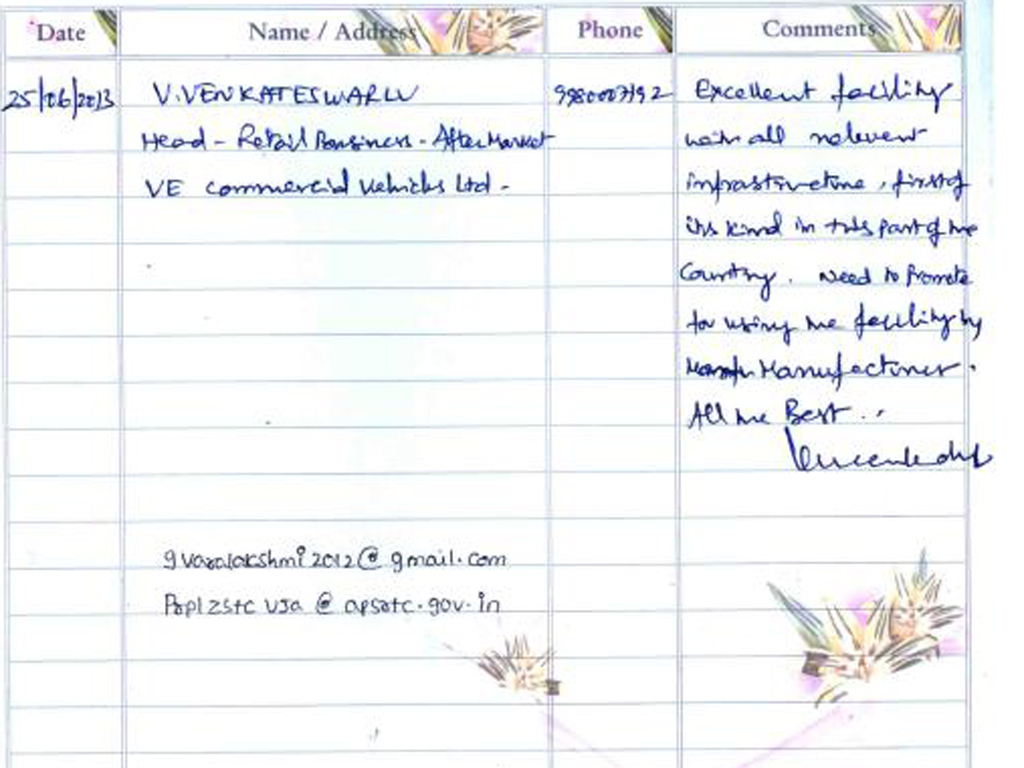 Date Name / Address Phone Comments
25/06/2013 V.VENKATESWARLU 9980007192 Excellent facility
Head - Retail Business - AfterMarket with all relevent
VE commercial Vehicles Ltd - infrastructure, first of
its kind in this part of the
Country. Need to promote
for using the facility by
Manufacturer.
All the Best ..
gvaralakshmi2012@gmail.com
@ apsrtc.gov.in